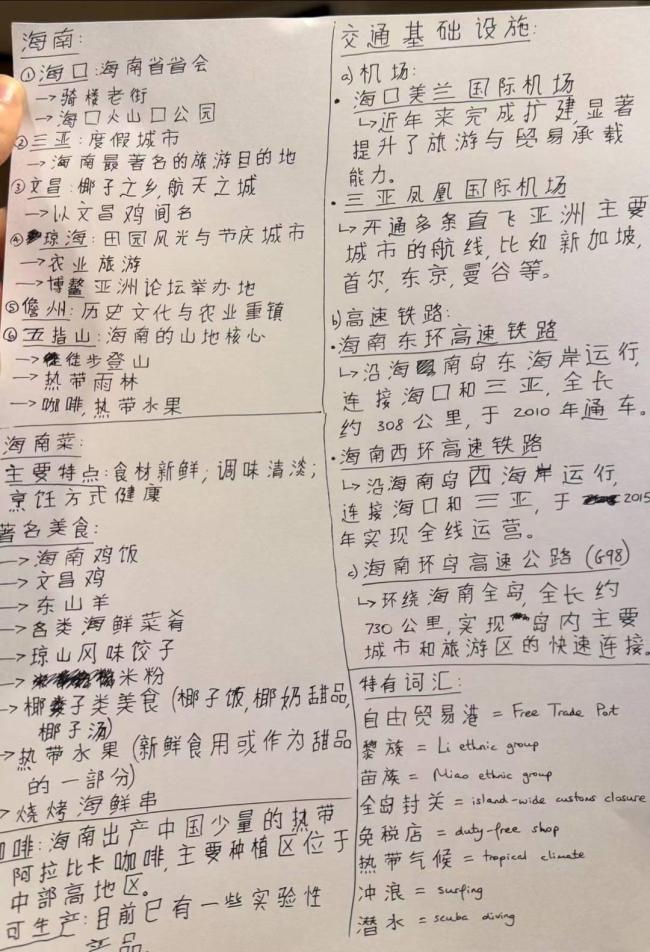 海南:
①海口:海南省省会
→骑楼老街
→海口火山口公园
②三亚:度假城市
→海南最著名的旅游目的地
③文昌:椰子之乡,航天之城
→以文昌鸡闻名
④琼海:田园风光与节庆城市
→农业旅游
→博鳌亚洲论坛举办地
⑤儋州:历史文化与农业重镇
⑥五指山:海南的山地核心
→徒步登山
→热带雨林
→咖啡,热带水果
海南菜:
主要特点:食材新鲜;调味清淡;
烹饪方式健康
著名美食:
→海南鸡饭
→文昌鸡
→东山羊
→各类海鲜菜肴
→琼山风味饺子
→米粉
→椰子类美食(椰子饭,椰奶甜品,
椰子汤)
→热带水果(新鲜食用或作为甜品
的一部分)
→烧烤海鲜串
咖啡:海南出产中国少量的热带
阿拉比卡咖啡,主要种植区位于
中部高地区。
可生产:目前已有一些实验性
产品.
交通基础设施:
a)机场:
·海口美兰国际机场
↳近年来完成扩建,显著
提升了旅游与贸易承载
能力。
·三亚凤凰国际机场
↳开通多条直飞亚洲主要
城市的航线,比如新加坡,
首尔,东京,曼谷等。
b)高速铁路:
·海南东环高速铁路
↳沿海南岛东海岸运行,
连接海口和三亚,全长
约308公里,于2010年通车。
·海南西环高速铁路
↳沿海南岛西海岸运行,
连接海口和三亚,于2015
年实现全线运营。
c)海南环岛高速公路(G98)
↳环绕海南全岛,全长约
730公里,实现岛内主要
城市和旅游区的快速连接。
特有词汇:
自由贸易港 = Free Trade Port
黎族 = Li ethnic group
苗族 = Miao ethnic group
全岛封关 = island-wide customs closure
免税店 = duty-free shop
热带气候 = tropical climate
冲浪 = surfing
潜水 = scuba diving